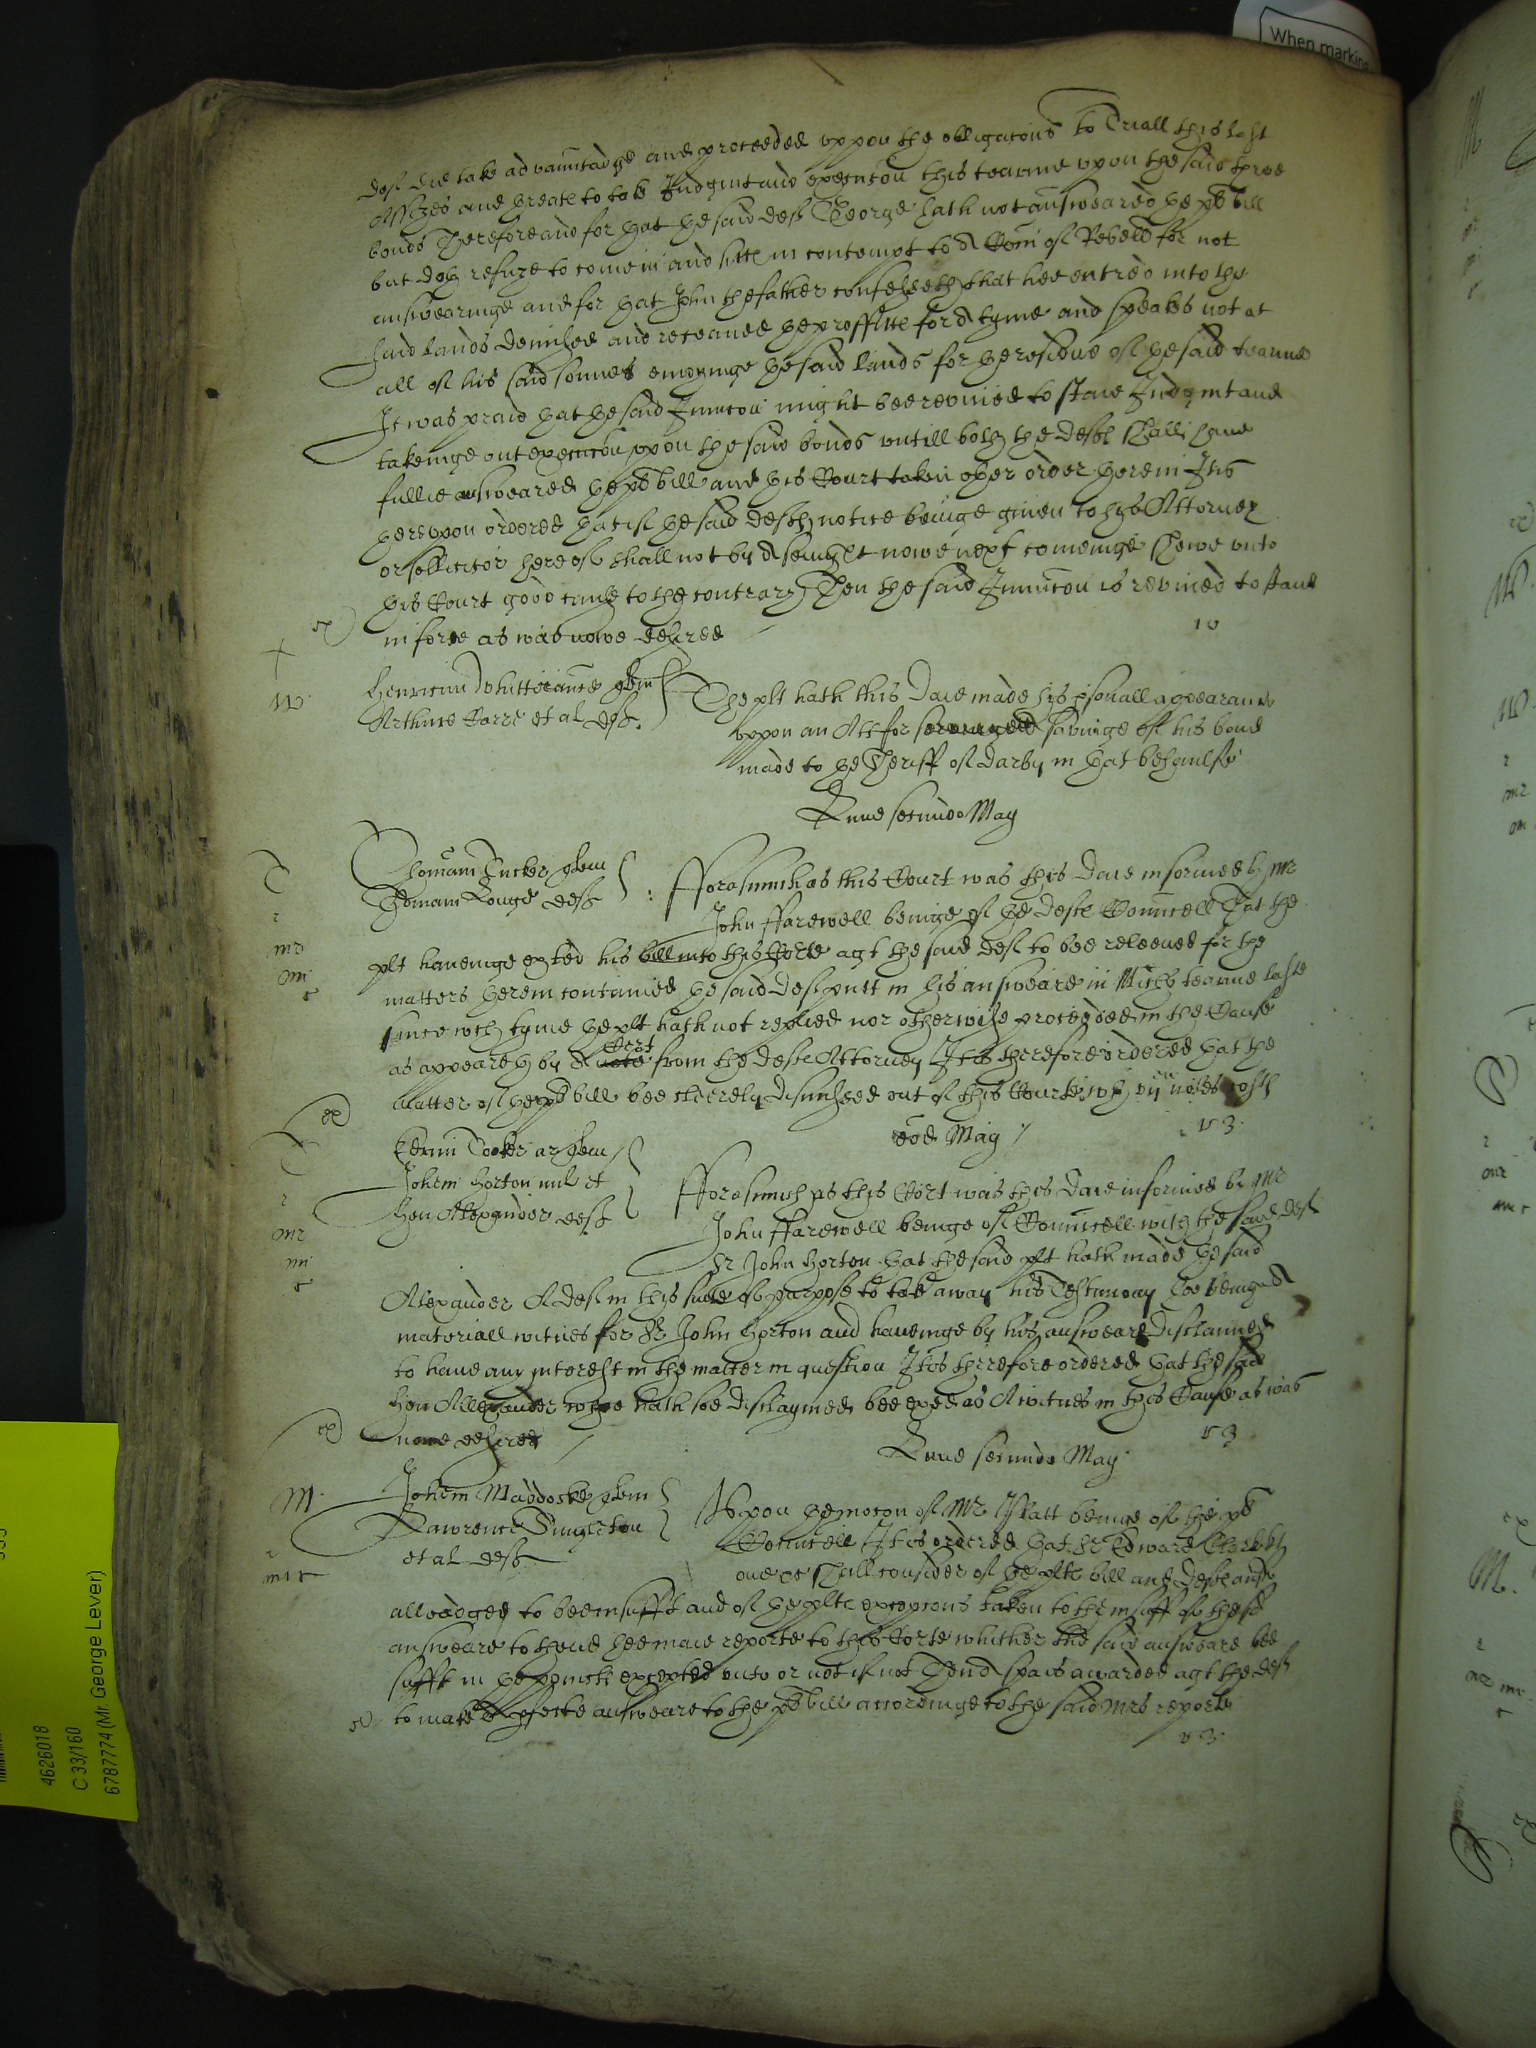 When marking
deft did take advauntadge and proceeded uppon the obligacons to Triall this last
Assizes and threate to take Judgmt and execucon this tearme upon the said three
bonds Therefore and for that the said deft George hath not answeared the plts bill
but doth refuze to come in and sitts in contempt to a Com of Rebell for not
answearinge and for that John the father confesseth that hee entred into the
said lands demised and receaved the proffitte for a tyme and speakes not at
all of his said sonnes enioyinge the said lands for the residue of the said tearme
It was praid that the said Iniunccon might bee revived to staie Judgmt and
takeinge out execucon uppon the said bonds untill both the defts shall have
fullie answeared the plts bill and this Court taken other order therein It is
thereupon ordered that if the said defts notice beinge given to his Attorney
or sollicitor hereof shall not by a sevenight nowe next comeinge shewe unto
this Court good cause to the contrary Then the said Iniunccon is revived to stand
in force as was nowe desired
ex
Henricum Whitt quer
Arthure Carre et al deft
The plt hath this Daie made his psonall appearance
uppon an Att for savinge of his bond
made to the Sheriff of Darby in that behaulfe
Lune secundo May
Thomam Tucker quer
Thomam Longe deft
Fforasmuch as this Court was this Daie informed by Mr
John Ffarewell beinge of the defts Councell That the
plt haveinge exhted his bill into this Corte agt the said deft to bee releeved for the
matters therein contained the said deft putt in his answeare in Michs tearme laste
since wch tyme the plt hath not replied nor otherwise proceeded in the Cause
as appeareth by a Cert from the defts Attorney It is therefore ordered that the
matter of the plts bill bee cleerely dismissed out of this Courte wth costs
ex
eod May
Edrum Tooker ar quer
Johem Horton mil et
Hen Alexander deft
Fforasmuch as this Cort was this Daie informed by Mr
John Ffarewell beinge of Councell with the said deft
Sr John Horton that the said plt hath made the said
Alexander A deft in this suite of purpose to take away his Testimony hee beinge a
materiall witnes for Sr John Horton and haveinge by his answeare Disclaimed
to have any interest in the matter in question It is therefore ordered that the said
Hen Allexander whoe hath soe disclaymed bee exed as A witnes in this Cause as was
nowe desired
ex
Lune secundo May
M
Johem Maddockes quer
Lawrence Singleton
et al deft
Uppon the mocon of Mr Platt beinge of the plts
Councell It is ordered that Sr Edward Clerke kt
one &c shall consider of the plts bill and defts answ
alleadged to bee insufft and of the plts excepcons taken to the insuff of these
answeare to thend hee maie reporte to this Corte whither the said answeare bee
sufft in the points excepted unto or not if not Then a spa is awarded agt the deft
to make a pfecte answeare to the plts bill accordinge to the said Mrs reporte
ex
4626018
C 33/160
6787774 (Mr. George Lever)